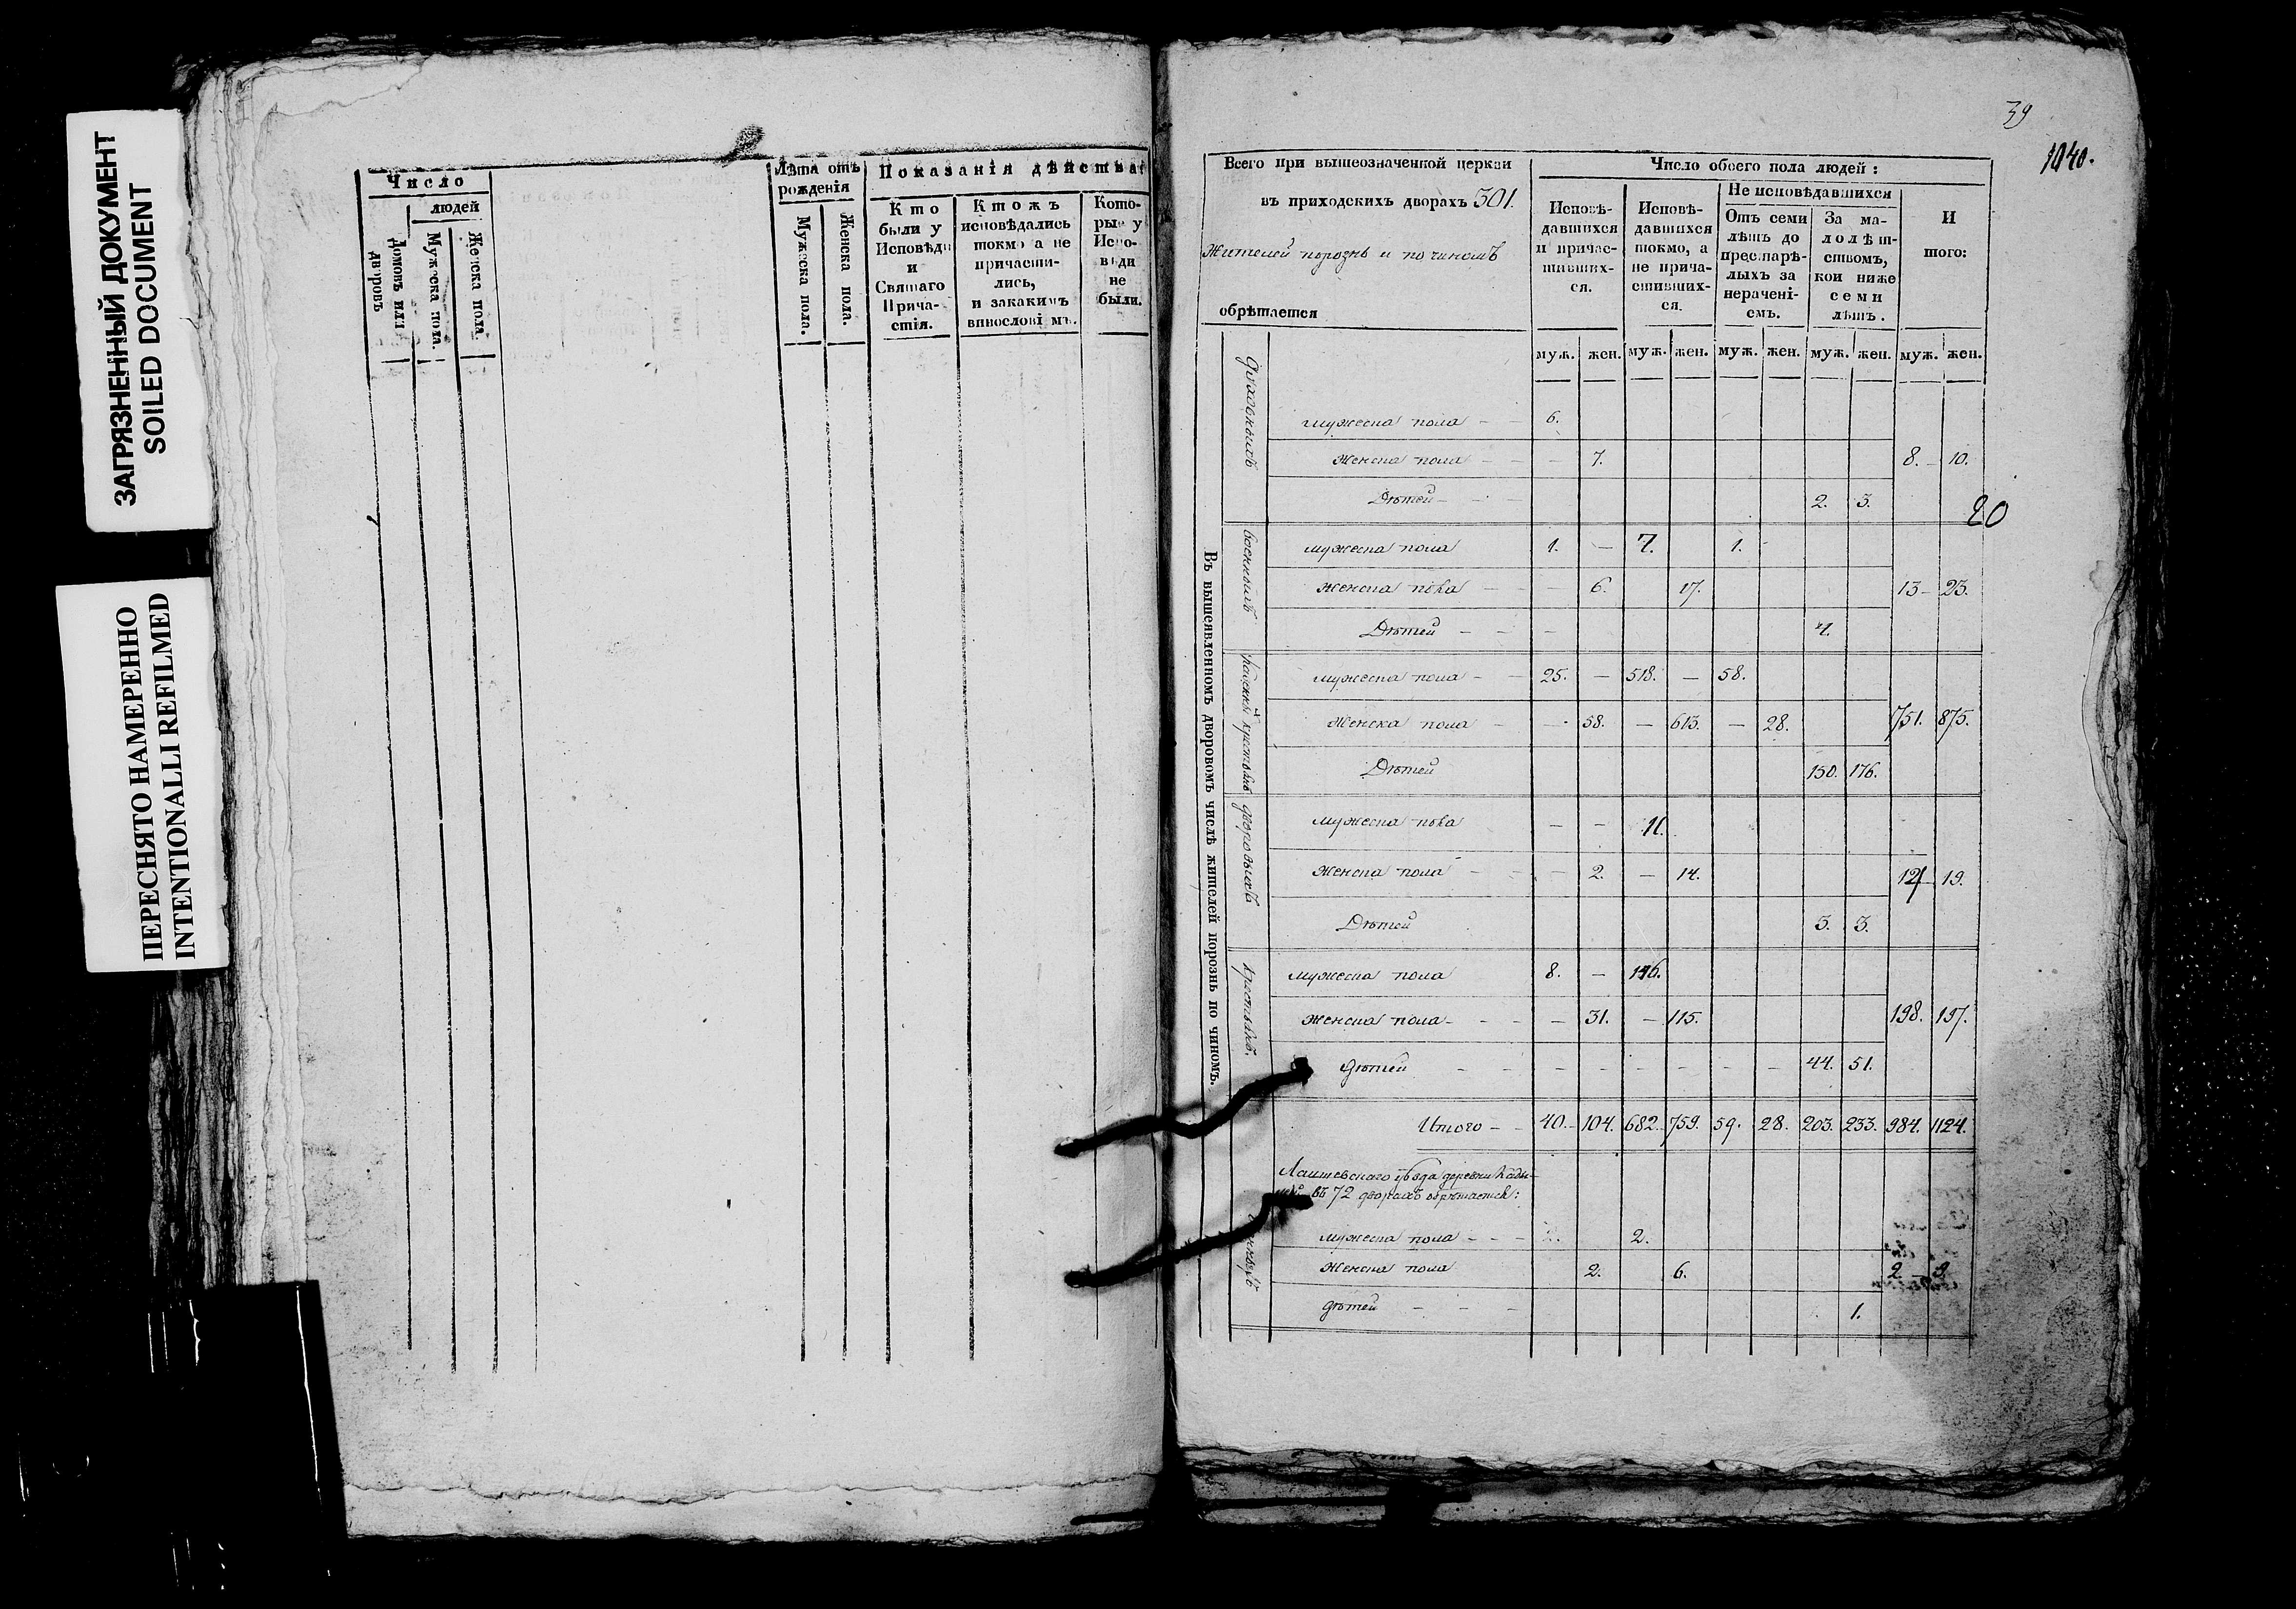 ЗАГРЯЗНЕННЫЙ ДОКУМЕНТ
SOILED DOCUMENT
ПЕРЕСНЯТО НАМЕРЕННО
INTENTIONALLI REFILMED
Число
людей
домовъ или дворовъ
Мужеска пола.
Женска пола.
Лѣта отъ рожденія
Мужеска пола.
Женска пола.
Показанія дѣйства
Кто
были у
Исповѣди
и
Святаго
Прича-
стія.
Ктожъ
исповѣдались
токмо а не
причасти-
лись,
и закакимъ
винословіемъ.
Кото-
рые у
Испо-
вѣди
не
были.
39
1040.
Всего при вышеозначенной церкви
въ приходскихъ дворахъ 301.
Жителей порознь и по чинамъ
обрѣтается
Число обоего пола людей:
Исповѣ-
давшихся
и причас-
тивших-
ся.
Исповѣ-
давшихся
токмо, а
не прича-
стивших-
ся.
Не исповѣдавшихся
Отъ семи
лѣтъ до
престарѣ-
лыхъ за
нерачені-
емъ.
За ма-
лолѣт-
ствомъ,
кои ниже
семи
лѣтъ.
И
того:
муж. жен. муж. жен. муж. жен. муж. жен. муж. жен.
Въ вышеявленномъ дворовомъ числѣ жителей порознь по чиномъ.
мужеска пола 6.
Женска пола 7. 8. 10.
Дѣтей 2. 3.
20
военныхъ
мужеска пола 1. 7. 1.
Женска пола 6. 17. 13 23.
Дѣтей 4.
мужеска пола 25. 518. 58.
Женска пола 58. 613. 28. 751. 875.
Дѣтей 150. 176.
дворовыхъ
мужеска пола 11.
Женска пола 2. 14. 19.
Дѣтей 3. 3.
крестьянъ.
мужеска пола 8. 146.
Женска пола 31. 115. 198. 197.
дѣтей 44. 51.
Итого 40. 104. 682. 759. 59. 28. 203. 233. 984. 1124.
Лаишевскаго уѣзда деревни
въ 72 дворахъ обрѣтается:
мужеска пола 2.
Женска пола 2. 6. 2. 9.
дѣтей 1.